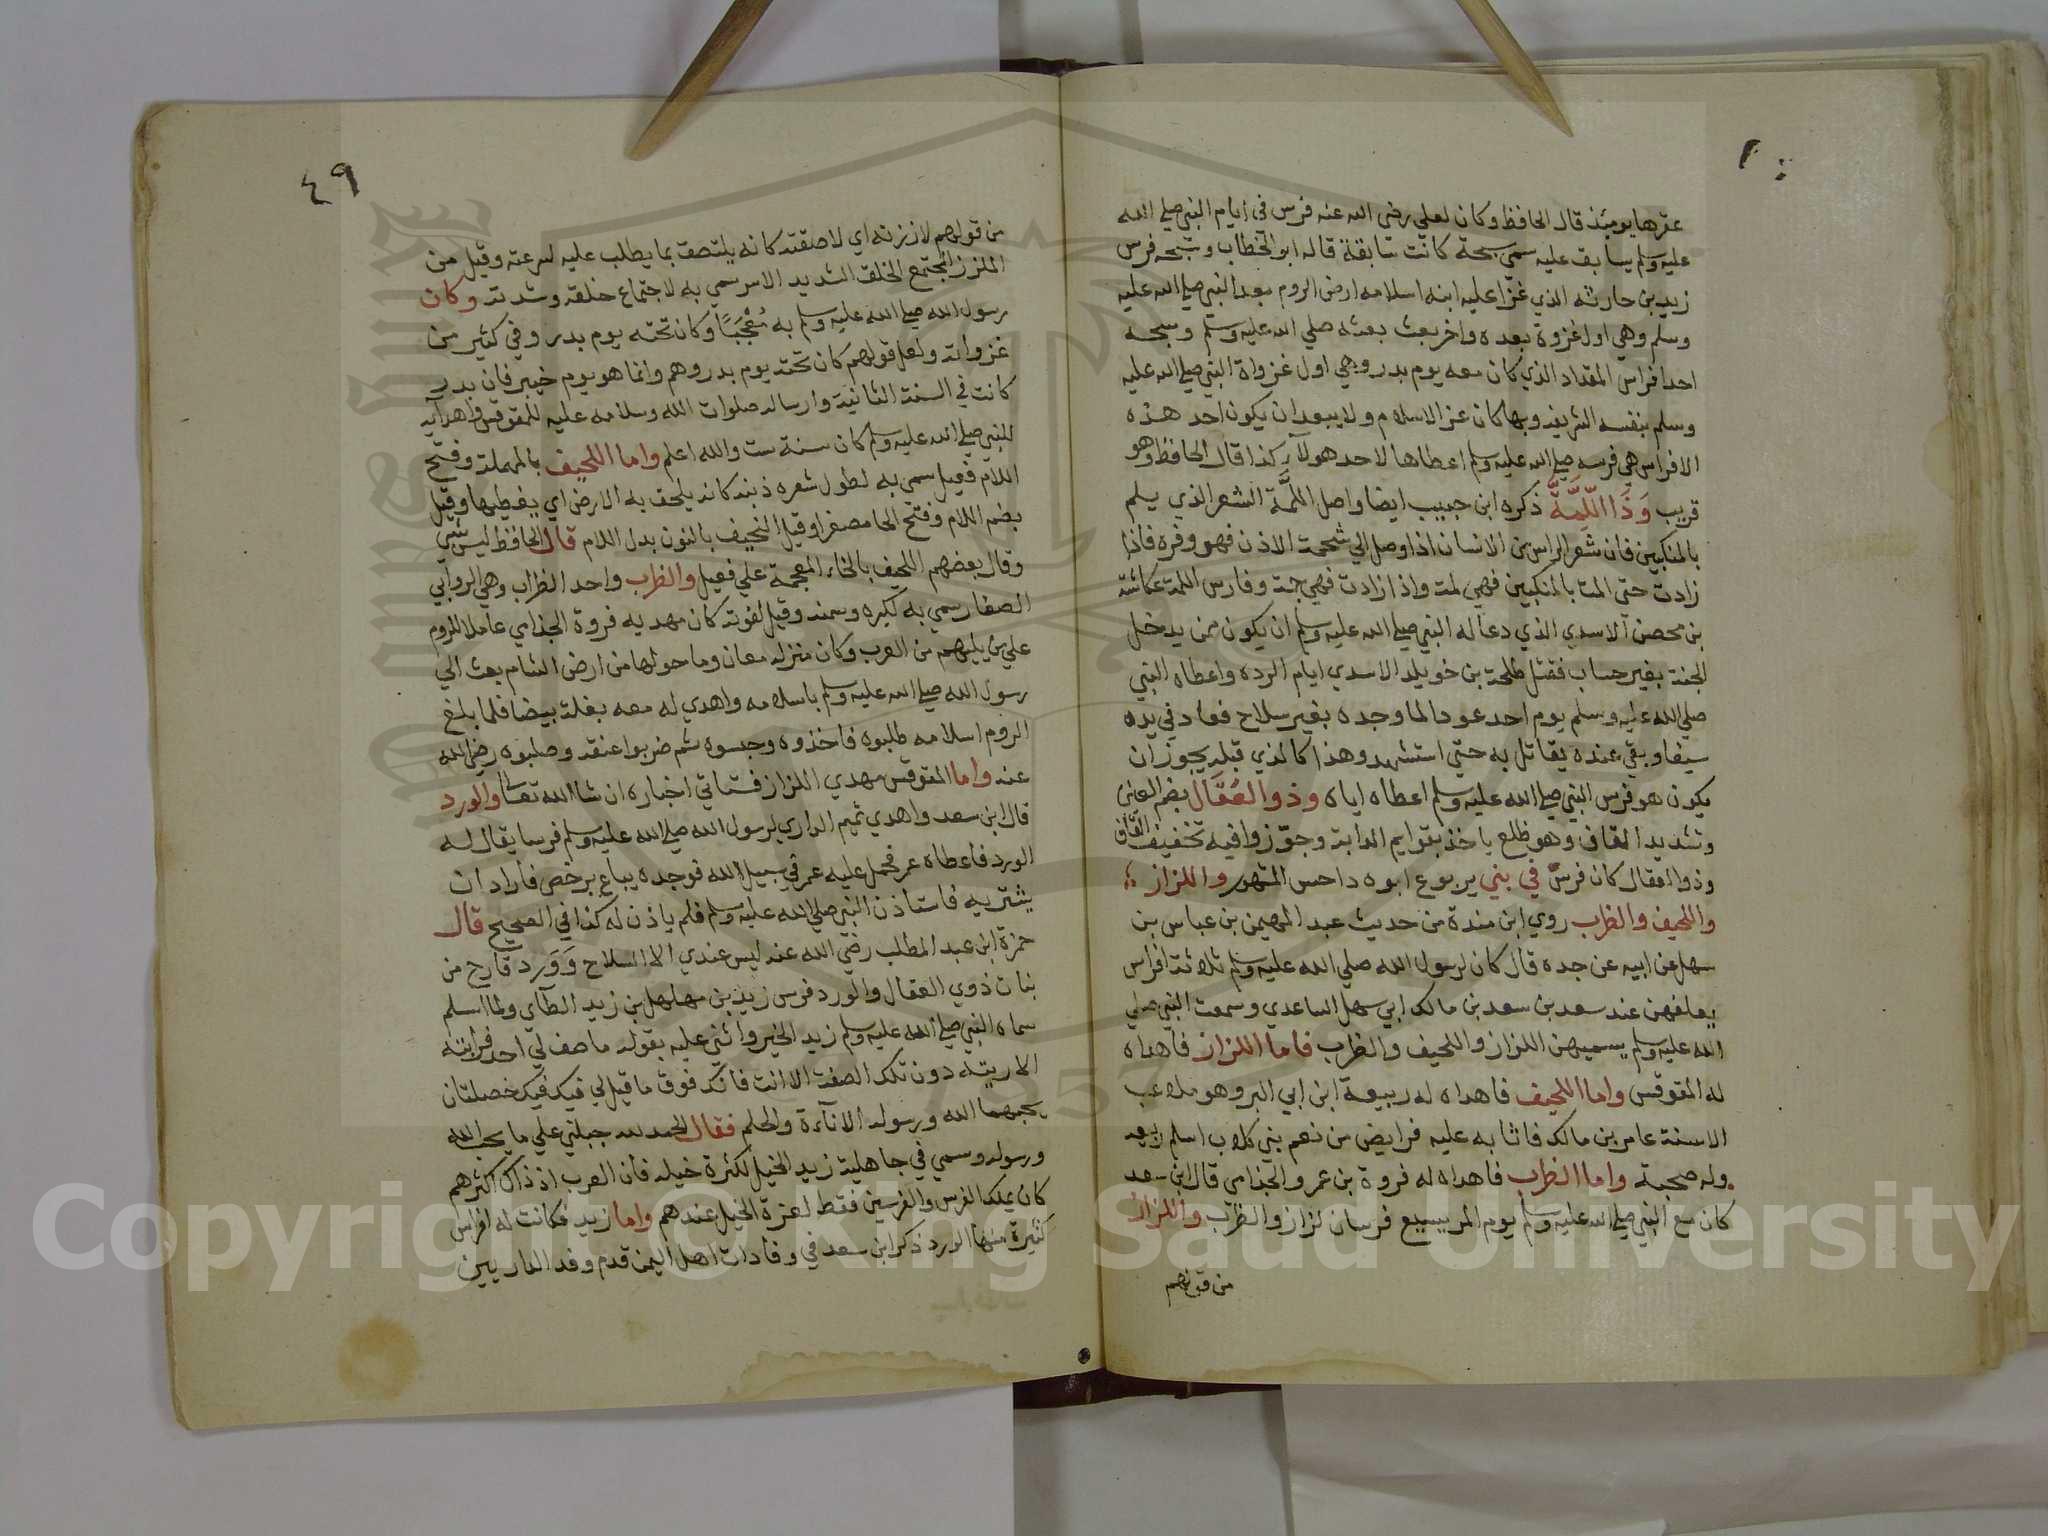 عقرها يومئذ قال الحافظ وكان لعلي رضي الله عنه فرس في ايام النبي صلي الله
عليه وسلم يسابق عليه سمي سبحة كانت سابقة قاله ابو الخطاب وسبحه فرس
زيد بن حارثه الذي غزا عليه ابنه اسلامه ارض الروم بعد النبي صلي الله عليه
وسلم وهي اول غزوة بعده واخر بعث بعثه صلي الله عليه وسلم وسبحه
احد افراس المقداد الذي كان معه يوم بدر وهي اول غزواة النبي صلي الله عليه
وسلم بنفسه الشريفه وبها كان عز الاسلام ولا يبعد ان يكون احد هذه
الافراس هي فرسه صلي الله عليه وسلم اعطاها لاحد هولآء كذا قال الحافظ وهو
قريب وَذَا اللِّمَّةُ ذكره ابن حبيب ايضا واصل اللمَّة الشعر الذي يلم
بالمنكبين فان شعر الراس من الانسان اذا وصل الي شحمة الاذن فهو وفره فاذا
زادت حتي المت بالمنكبين فهي لمة واذا زادت فهي جمة وفارس اللمة عكاشه
بن محصن الاسدي الذي دعا له النبي صلي الله عليه وسلم ان يكون ممن يدخل
الجنة بغير حساب فقتل طلحة بن خويلد الاسدي ايام الرده واعطاه النبي
صلي الله عليه وسلم يوم احد عودا لما وجده بغير سلاح فعاد في يده
سيفا وبقي عنده يقاتل به حتي استشهد وهذا كالذي قبله يجوز ان
يكون هو فرس النبي صلي الله عليه وسلم اعطاه اياه وذو العُقَّال بضم العين
وتشديد القاف وهو ظلع ياخذ بقوايم الدابة وجوّزوا فيه تخفيف القاف
وذو العقال كان فرسٌ في بني يربوع ابوه داحس المشهور واللزاز
واللحيف والظرب روي ابن مندة من حديث عبد المهيمن بن عباس بن
سهل عن ابيه عن جده قال كان لرسول الله صلي الله عليه وسلم ثلاثة افراس
يعلفهن عند سعد بن سعد بن مالك ابي سهل الساعدي وسمعت النبي صلي
الله عليه وسلم يسميهن اللزاز واللحيف والظرب فاما اللزاز فاهداه
له المقوقس واما اللحيف فاهداه له ربيعة ابن ابي البر وهو ملاعب
الاسنة عامر بن مالك فاثابه عليه فرايض من نعم بني كلاب اسلم
وله صحبة واما الظرب فاهداه له فروة بن عمرو الجذامي قال ابن سعد
كان مع النبي صلي الله عليه وسلم يوم المريسيع فرسان لزاز والظرب واللزاز
من قولهم
٤٩
من قولهم لاززته اي لاصقته كانه يلتصق بما يطلب عليه لسرعته وقيل من
الملزز المجتمع الخلق الشديد الاسر سمي به لاجتماع خلقه وشدته وكان
رسول الله صلي الله عليه وسلم به مُعْجَبًا وكان تحته يوم بدر وفي كثير من
غزواته ولعل قولهم كان تحته يوم بدر وهم وانما هو يوم خيبر فان بدر
كانت في السنة الثانية وارساله صلوات الله وسلامه عليه للمقوقس واهدايه
للنبي صلي الله عليه وسلم كان سنة ست والله اعلم واما اللحيف بالمهملة وفتح
اللام فعيل سمي به لطول شعره ذنبه كانه يلحف به الارض اي يغطيها وقيل
بضم اللام وفتح الحا مصغرا وقيل النحيف بالنون بدل اللام قال الحافظ ليس بشي
وقال بعضهم اللخيف بالخاء المعجمة علي فعيل والظرب واحد الظراب وهي الروابي
الصغار سمي به لكبره وسمنه وقيل لقوته كان مهديه فروة الجذامي عاملا للروم
علي من يليهم من العرب وكان منزله معان وما حولها من ارض الشام بعث الي
رسول الله صلي الله عليه وسلم باسلامه واهدي له معه بغلة بيضا فلما بلغ
الروم اسلامه طلبوه فاخذوه وحبسوه ثم ضربوا عنقه وصلبوه رضي الله
عنه واما المقوقس مهدي اللزاز فستاتي اخباره ان شا الله تعالي والورد
قال ابن سعد واهدي تميم الداري لرسول الله صلي الله عليه وسلم فرسا يقال له
الورد فاعطاه عمر فحمل عليه عمر في سبيل الله فوجده يباع برخص فاراد ان
يشتريه فاستاذن النبي صلي الله عليه وسلم فلم ياذن له كذا في الصحيح قال
حمزة ابن عبد المطلب رضي الله عنه ليس عندي الا السلاح وَوَرد قارح من
بنات ذوي العقال والورد فرس زيد بن مهلهل بن زيد الطآي ولما اسلم
سماه النبي صلي الله عليه وسلم زيد الخير واثني عليه بقوله ما صف لي احد فرايته
الا رايته دون تلك الصفة الا انت فانك فوق ما قيل لي فيك فيك خصلتان
يحبهما الله ورسوله الانآءة والحلم فقال الحمد لله جبلني علي ما يحب الله
ورسوله وسمي في جاهلية زيد الخيل لكثرة خيله فان العرب اذ ذاك اكثرهم
كان يملك الفرس والفرسين فقط لعزة الخيل عندهم واما زيد فكانت له افراس
كثيرة منها الورد ذكر ابن سعد في وفادات اهل اليمن قدم وفد الداريين
Copyright © King Saud University